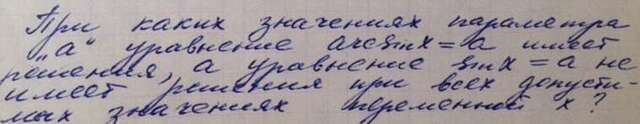 При каких значениях параметра
„а“ уравнение arcsinx=a имеет
решения, а уравнение sinx=a не
имеет решения при всех допусти-
мых значениях переменной x?